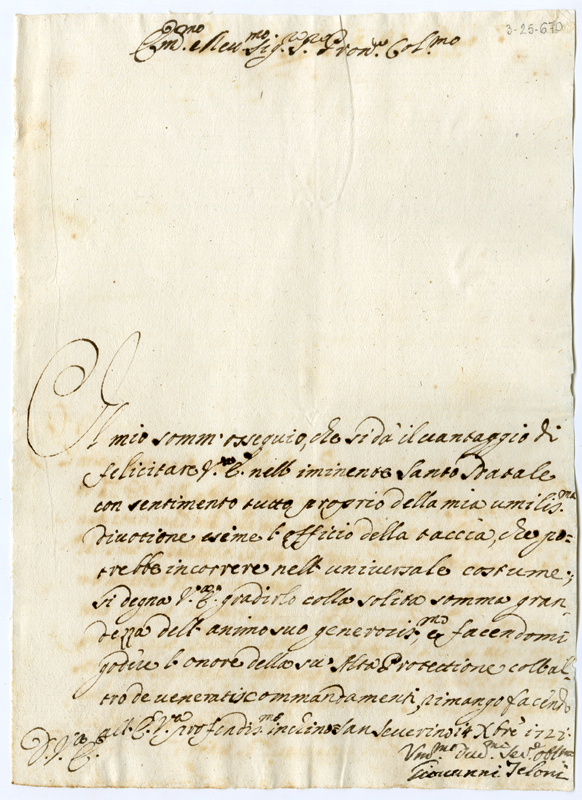 3-25-670
Em.mo e Reu.mo Sig.r Sig.r Pron.e Col.mo
Il mio somm' ossequio, che si dà il uantaggio di
felicitare V. E. nell' iminente Santo Natale
con sentimento tutto proprio della mia umilis.ma
diuotione esime l' officio della taccia, che po-
trebbe incorrere nell' uniuersale costume;
si degna V. E. gradirlo colla solita somma gran-
dezza dell' animo suo generosis.mo, e facendomi
godere l' onore della su' Alta Protectione coll' al-
tro de ueneratis. commandamenti, rimango facendo
all' E. V. profondis.mo inchino San Seuerino 14 Xbre 1722.
D. V. E.
Um.mo Deu.mo Ser.e Obl.mo
Giouanni